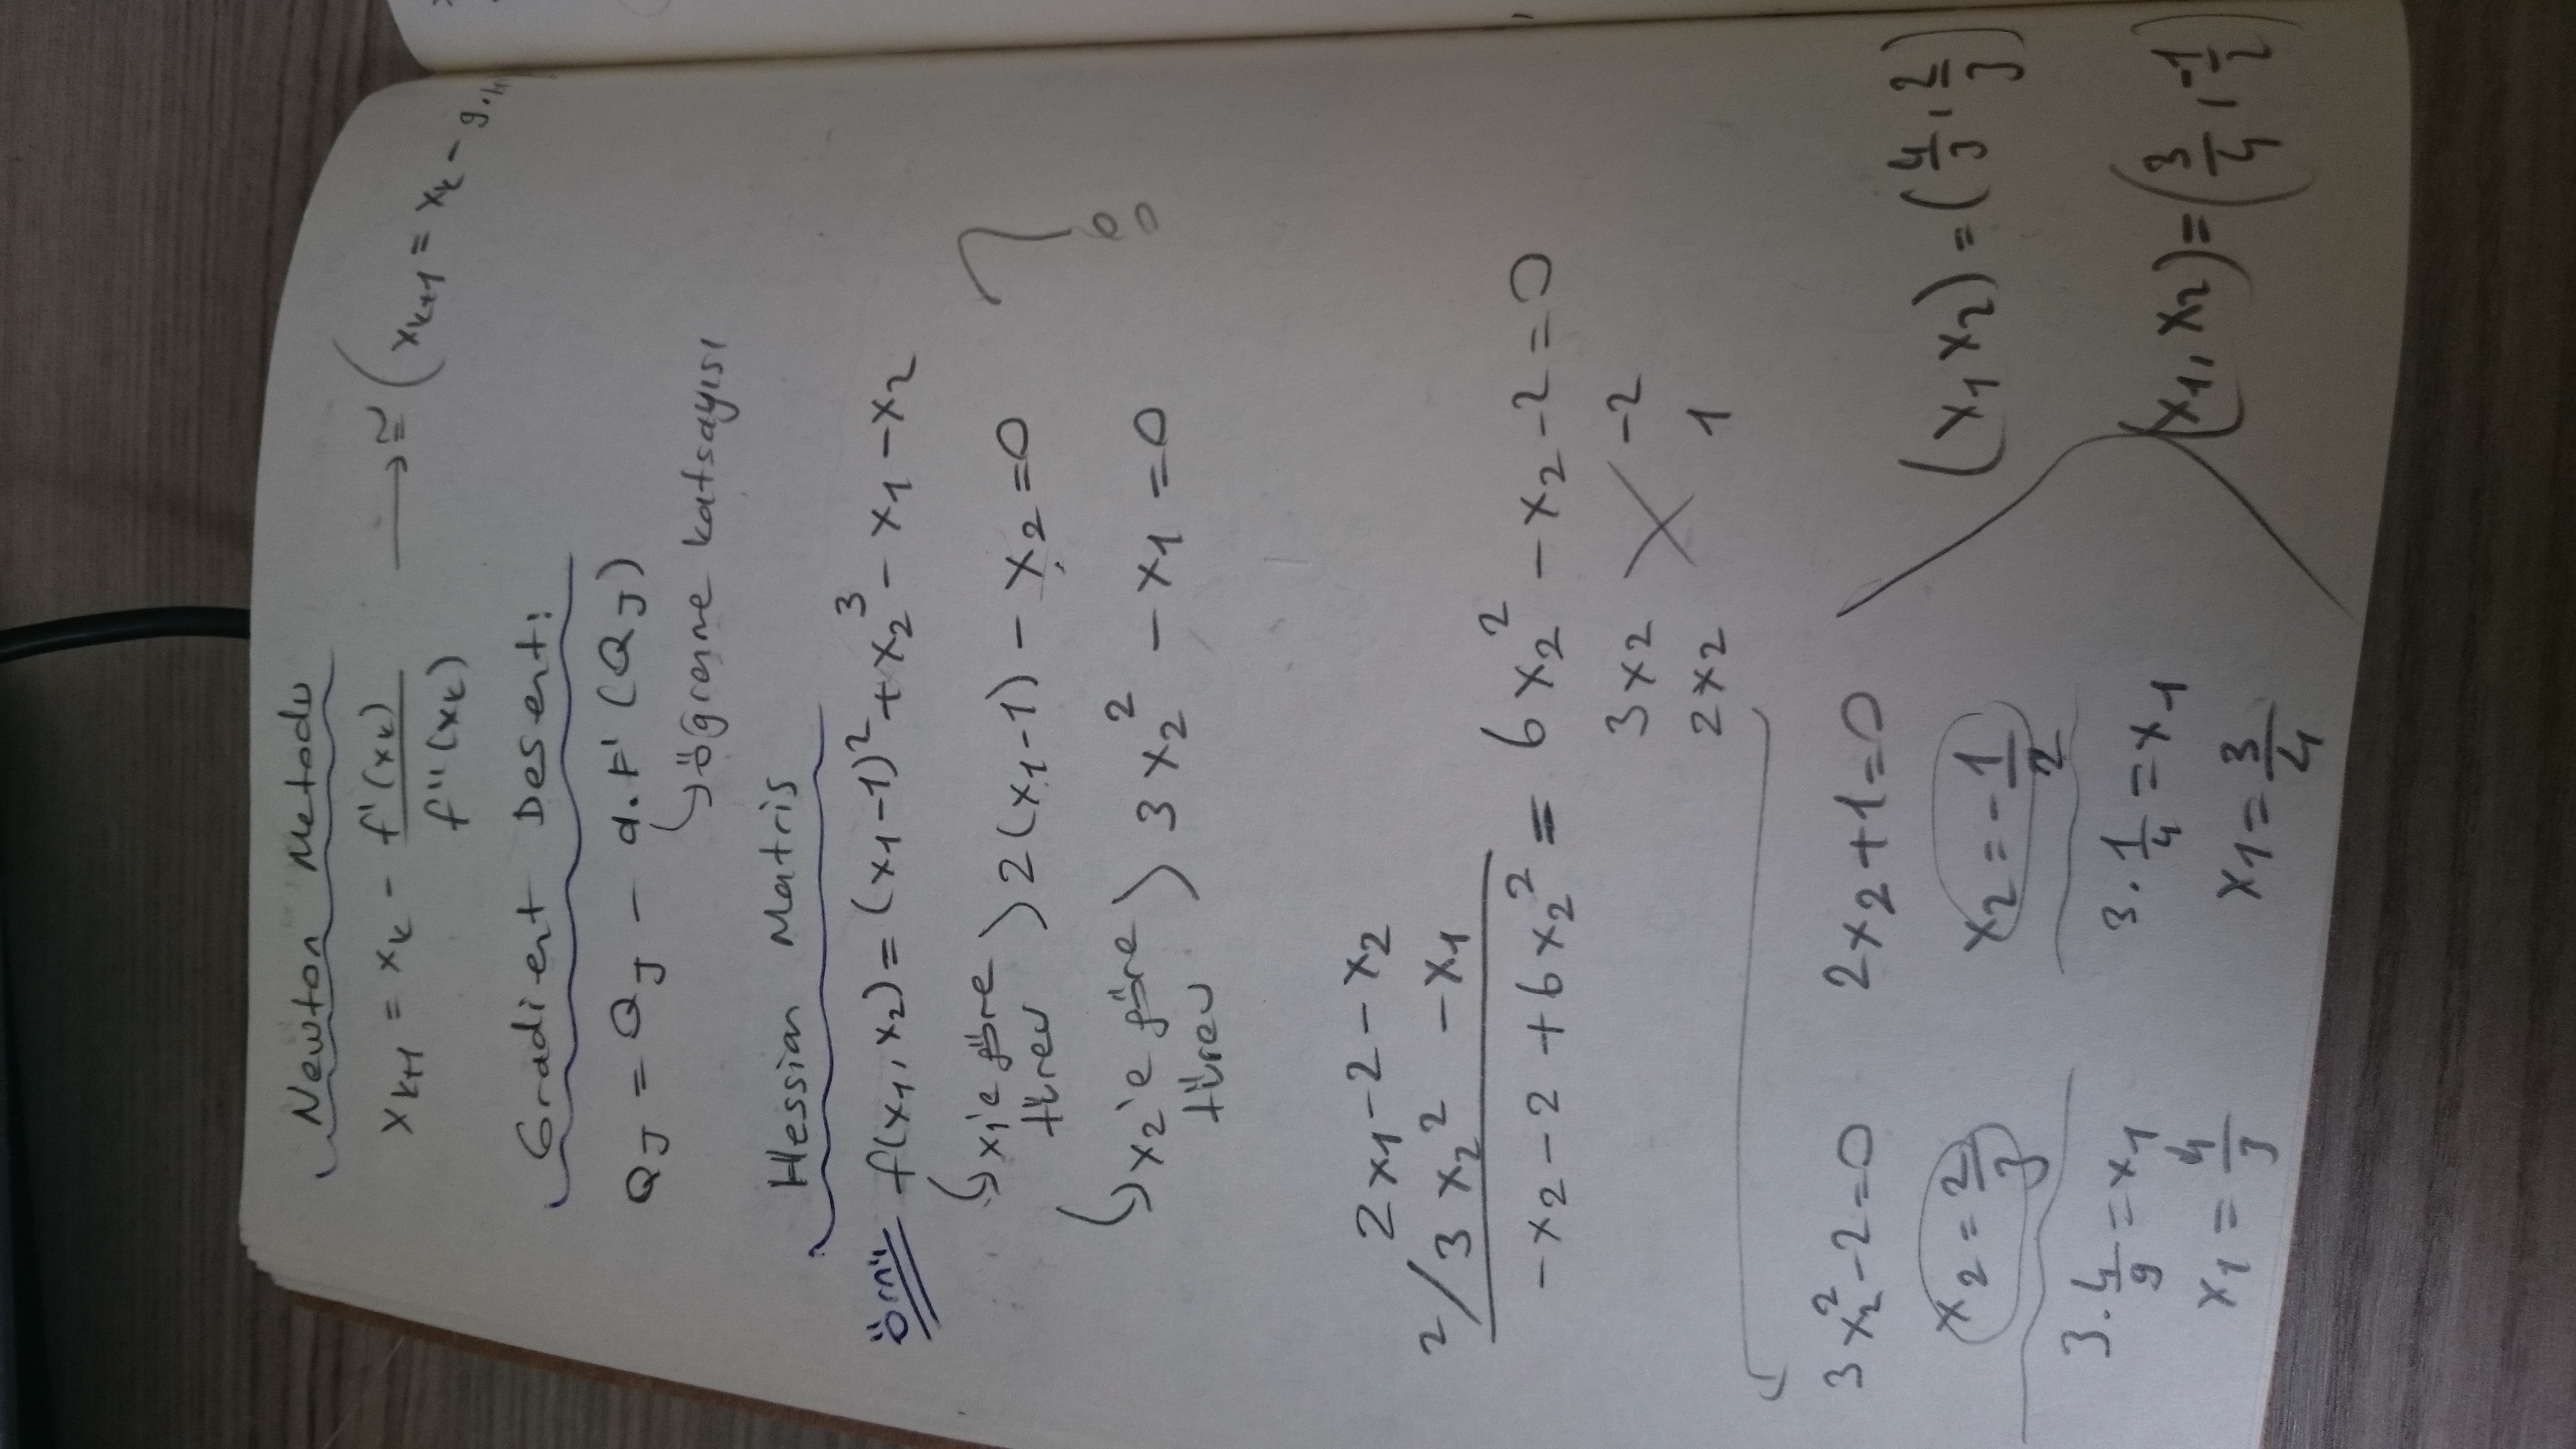 Newton Metodu
x_{k+1} = x_k - f'(x_k) / f''(x_k) → ≅ (x_{k+1} = x_k - g.H
Gradient Desent:
Q_J = Q_J - α.F'(Q_J)
↳ öğrenme katsayısı
Hessian Matris
örn: f(x_1, x_2) = (x_1-1)^2 + x_2^3 - x_1 - x_2
↳ x_1'e göre türev ) 2(x_1-1) - x_2 = 0
?
↳ x_2'e göre türev ) 3x_2^2 - x_1 = 0
2x_1 - 2 - x_2
2/ 3x_2^2 - x_1
-x_2 - 2 + 6x_2^2 = 6x_2^2 - x_2 - 2 = 0
3x_2 -2
2x_2 1
3x_2^2 - 2 = 0 2x_2 + 1 = 0
x_2 = 2/3 x_2 = -1/2
3 . 4/9 = x_1 3 . 1/4 = x_1
x_1 = 4/3 x_1 = 3/4
(x_1 x_2) = (4/3, 2/3)
(x_1, x_2) = (3/4, -1/2)